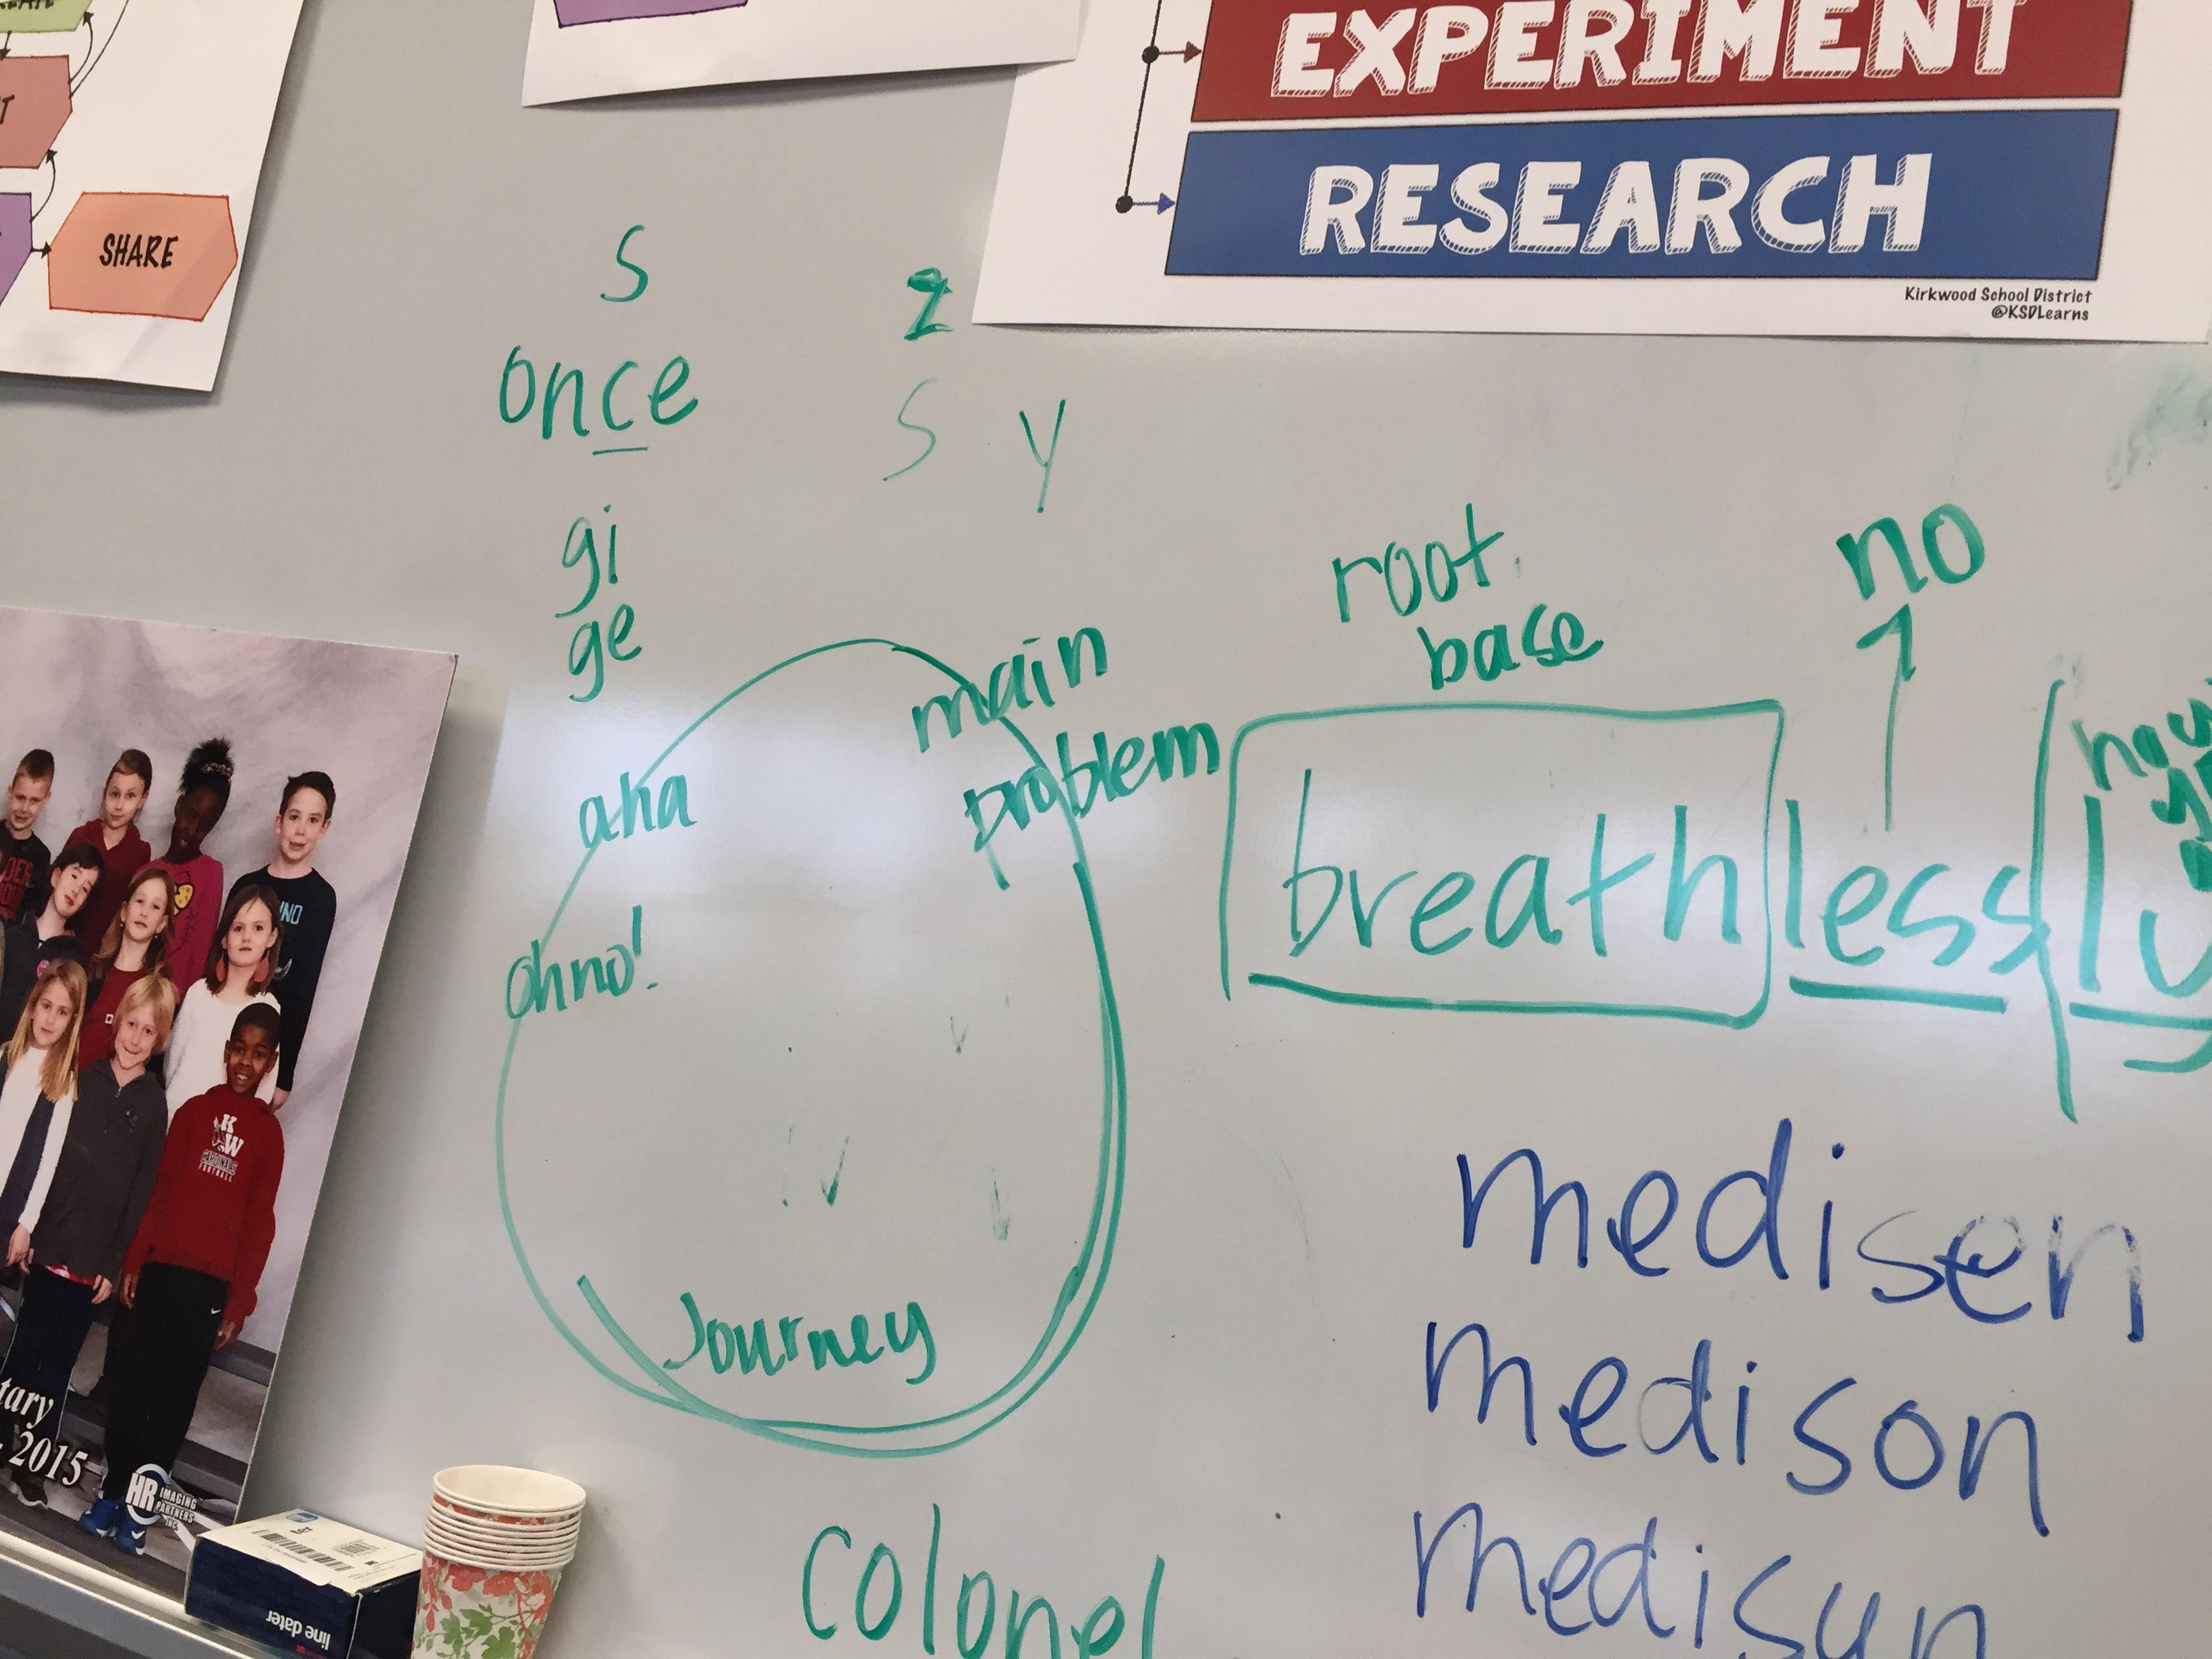 EXPERIMENT
RESEARCH
Kirkwood School District
@KSDLearns
SHARE
S
z
once
S y
gi
ge
root
base
no
main
problem
aha
oh no!
breathlessly
Journey
medisen
medison
medisun
colonel
tary
2015
HR IMAGING
PARTNERS
K
W
CARDINALS
FOOTBALL
line dater